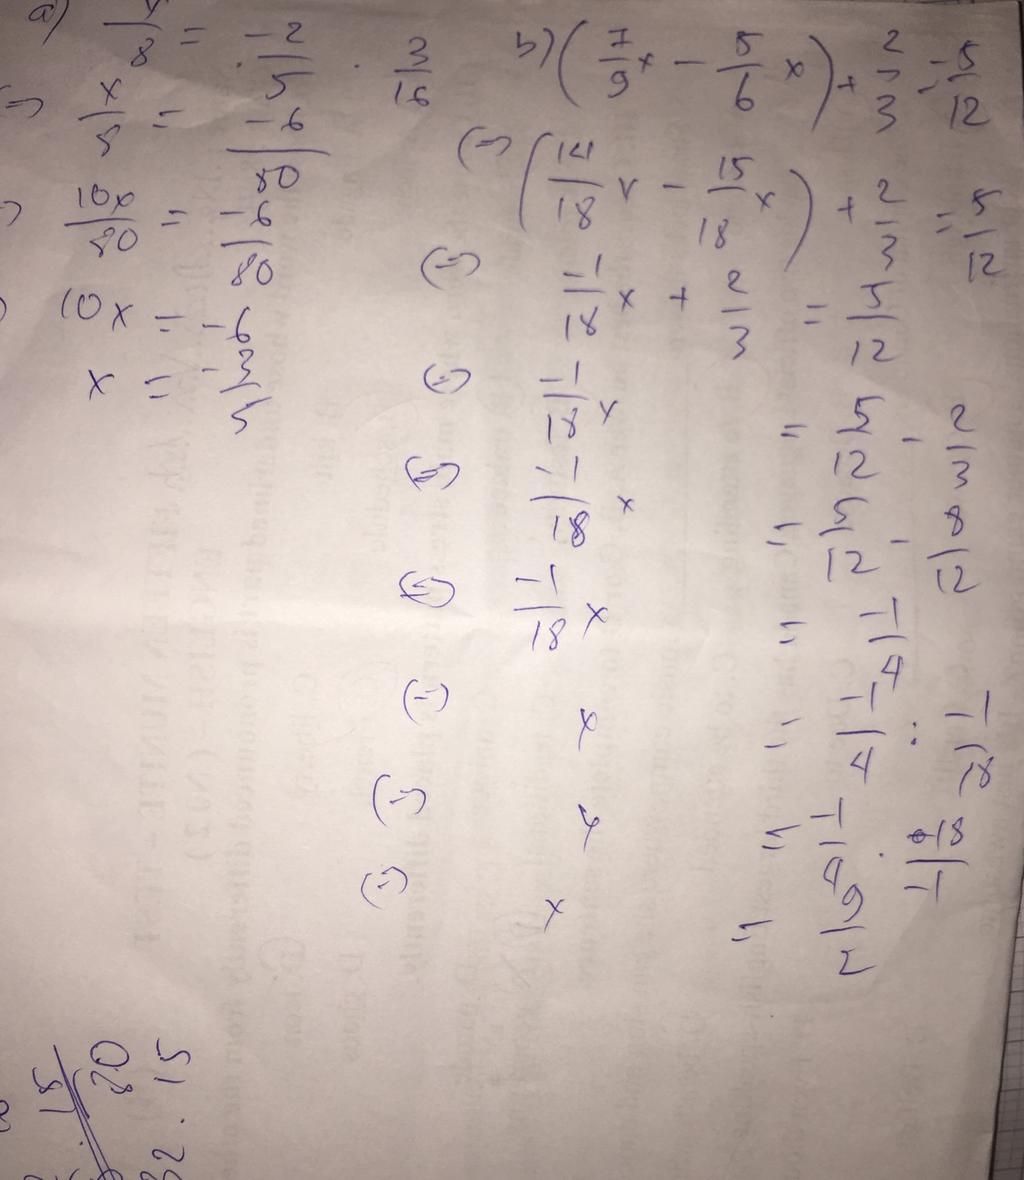 a) x/8 = -2/5 · 3/16
=> x/8 = -6/80
10x/80 = -6/80
10x = -6
x = -3/5
b) (7/9 x - 5/6 x) + 2/3 = 5/12
(=) (14/18 x - 15/18 x) + 2/3 = 5/12
(=) -1/18 x + 2/3 = 5/12
(=) -1/18 x = 5/12 - 2/3
(=) -1/18 x = 5/12 - 8/12
(=) -1/18 x = -1/4
(=) x = -1/4 : -1/18
(=) x = -1/4 · 18/-1
(=) x = 9/2
15
80
32 · 15